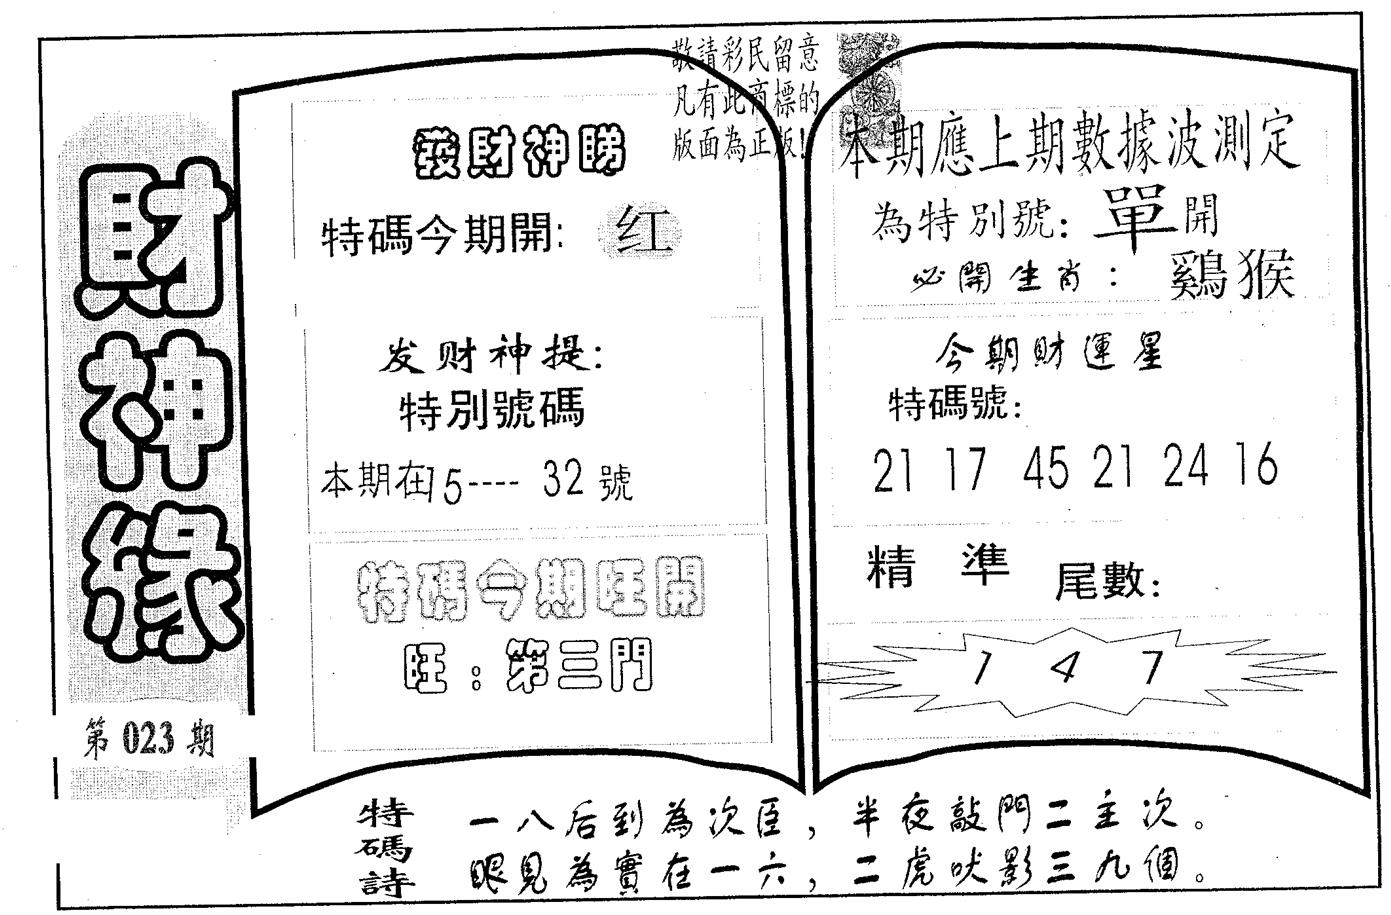 財神緣
第023期
敬請彩民留意
凡有此商標的
版面為正版!
發財神睇
特碼今期開: 红
发财神提:
特別號碼
本期在15---- 32 號
特碼今期旺開
旺:第三門
本期應上期數據波測定
為特別號: 單開
必開生肖: 鷄猴
今期財運星
特碼號:
21 17 45 21 24 16
精 準 尾數:
1 4 7
特碼詩
一八后到為次臣,半夜敲門二主次。
眼見為實在一六,二虎吠影三九個。